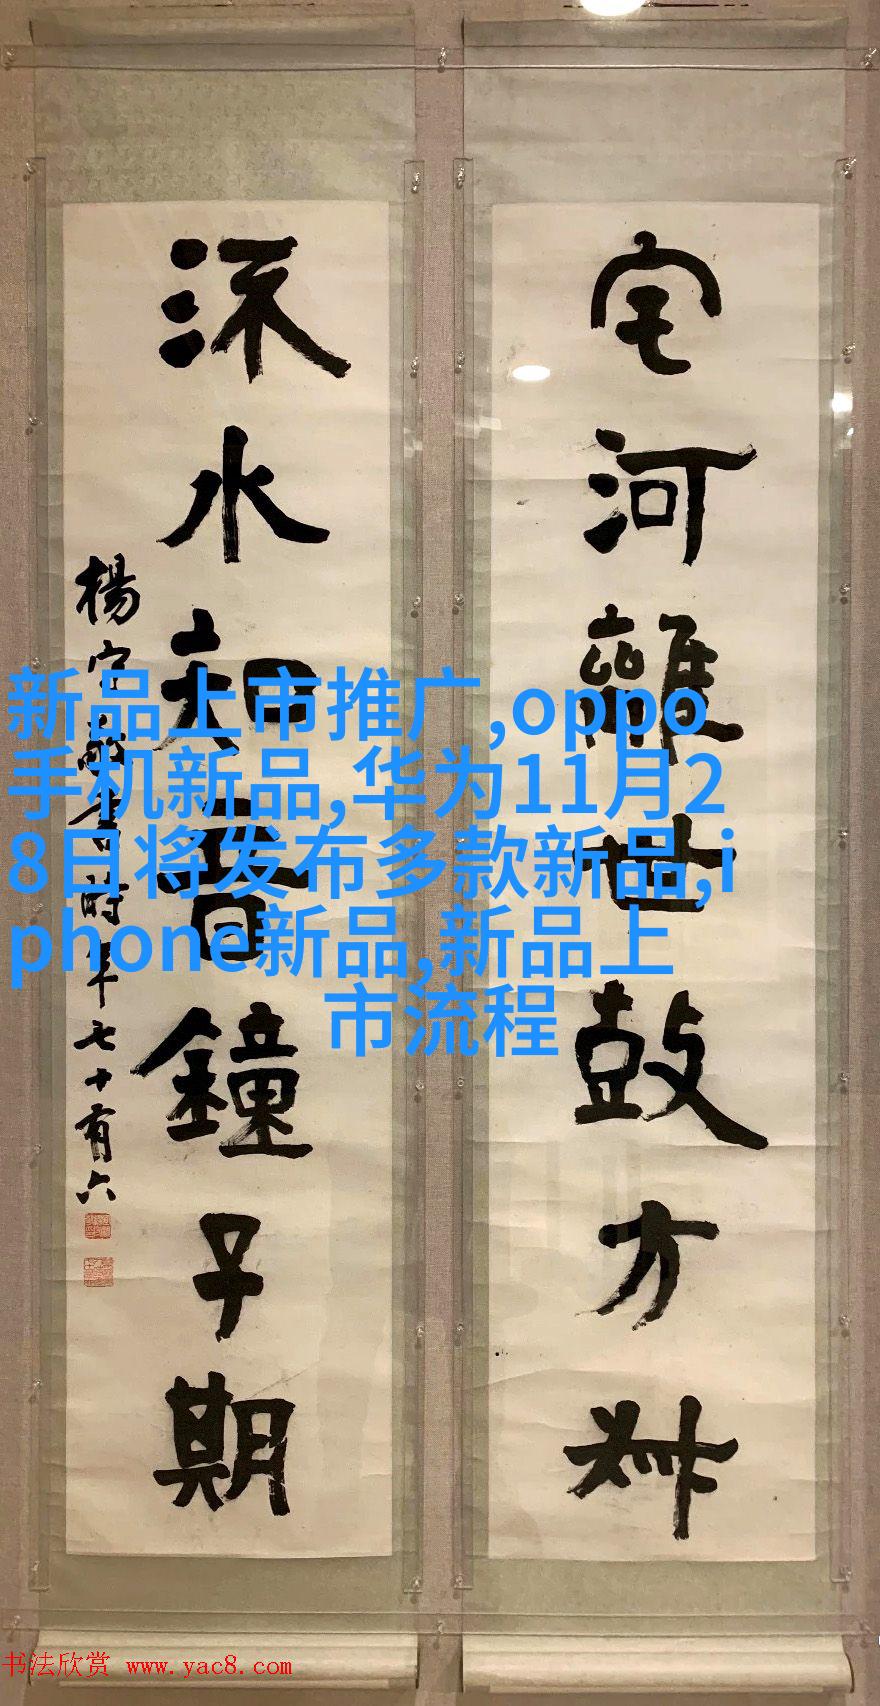 宅河離世鼓方叔
流水知音鐘子期
楊守敬書時年七十有六
新品上市推广,oppo
手机新品,华为11月2
8日将发布多款新品,i
phone新品,新品上
市流程
书法欣赏 www.yac8.com